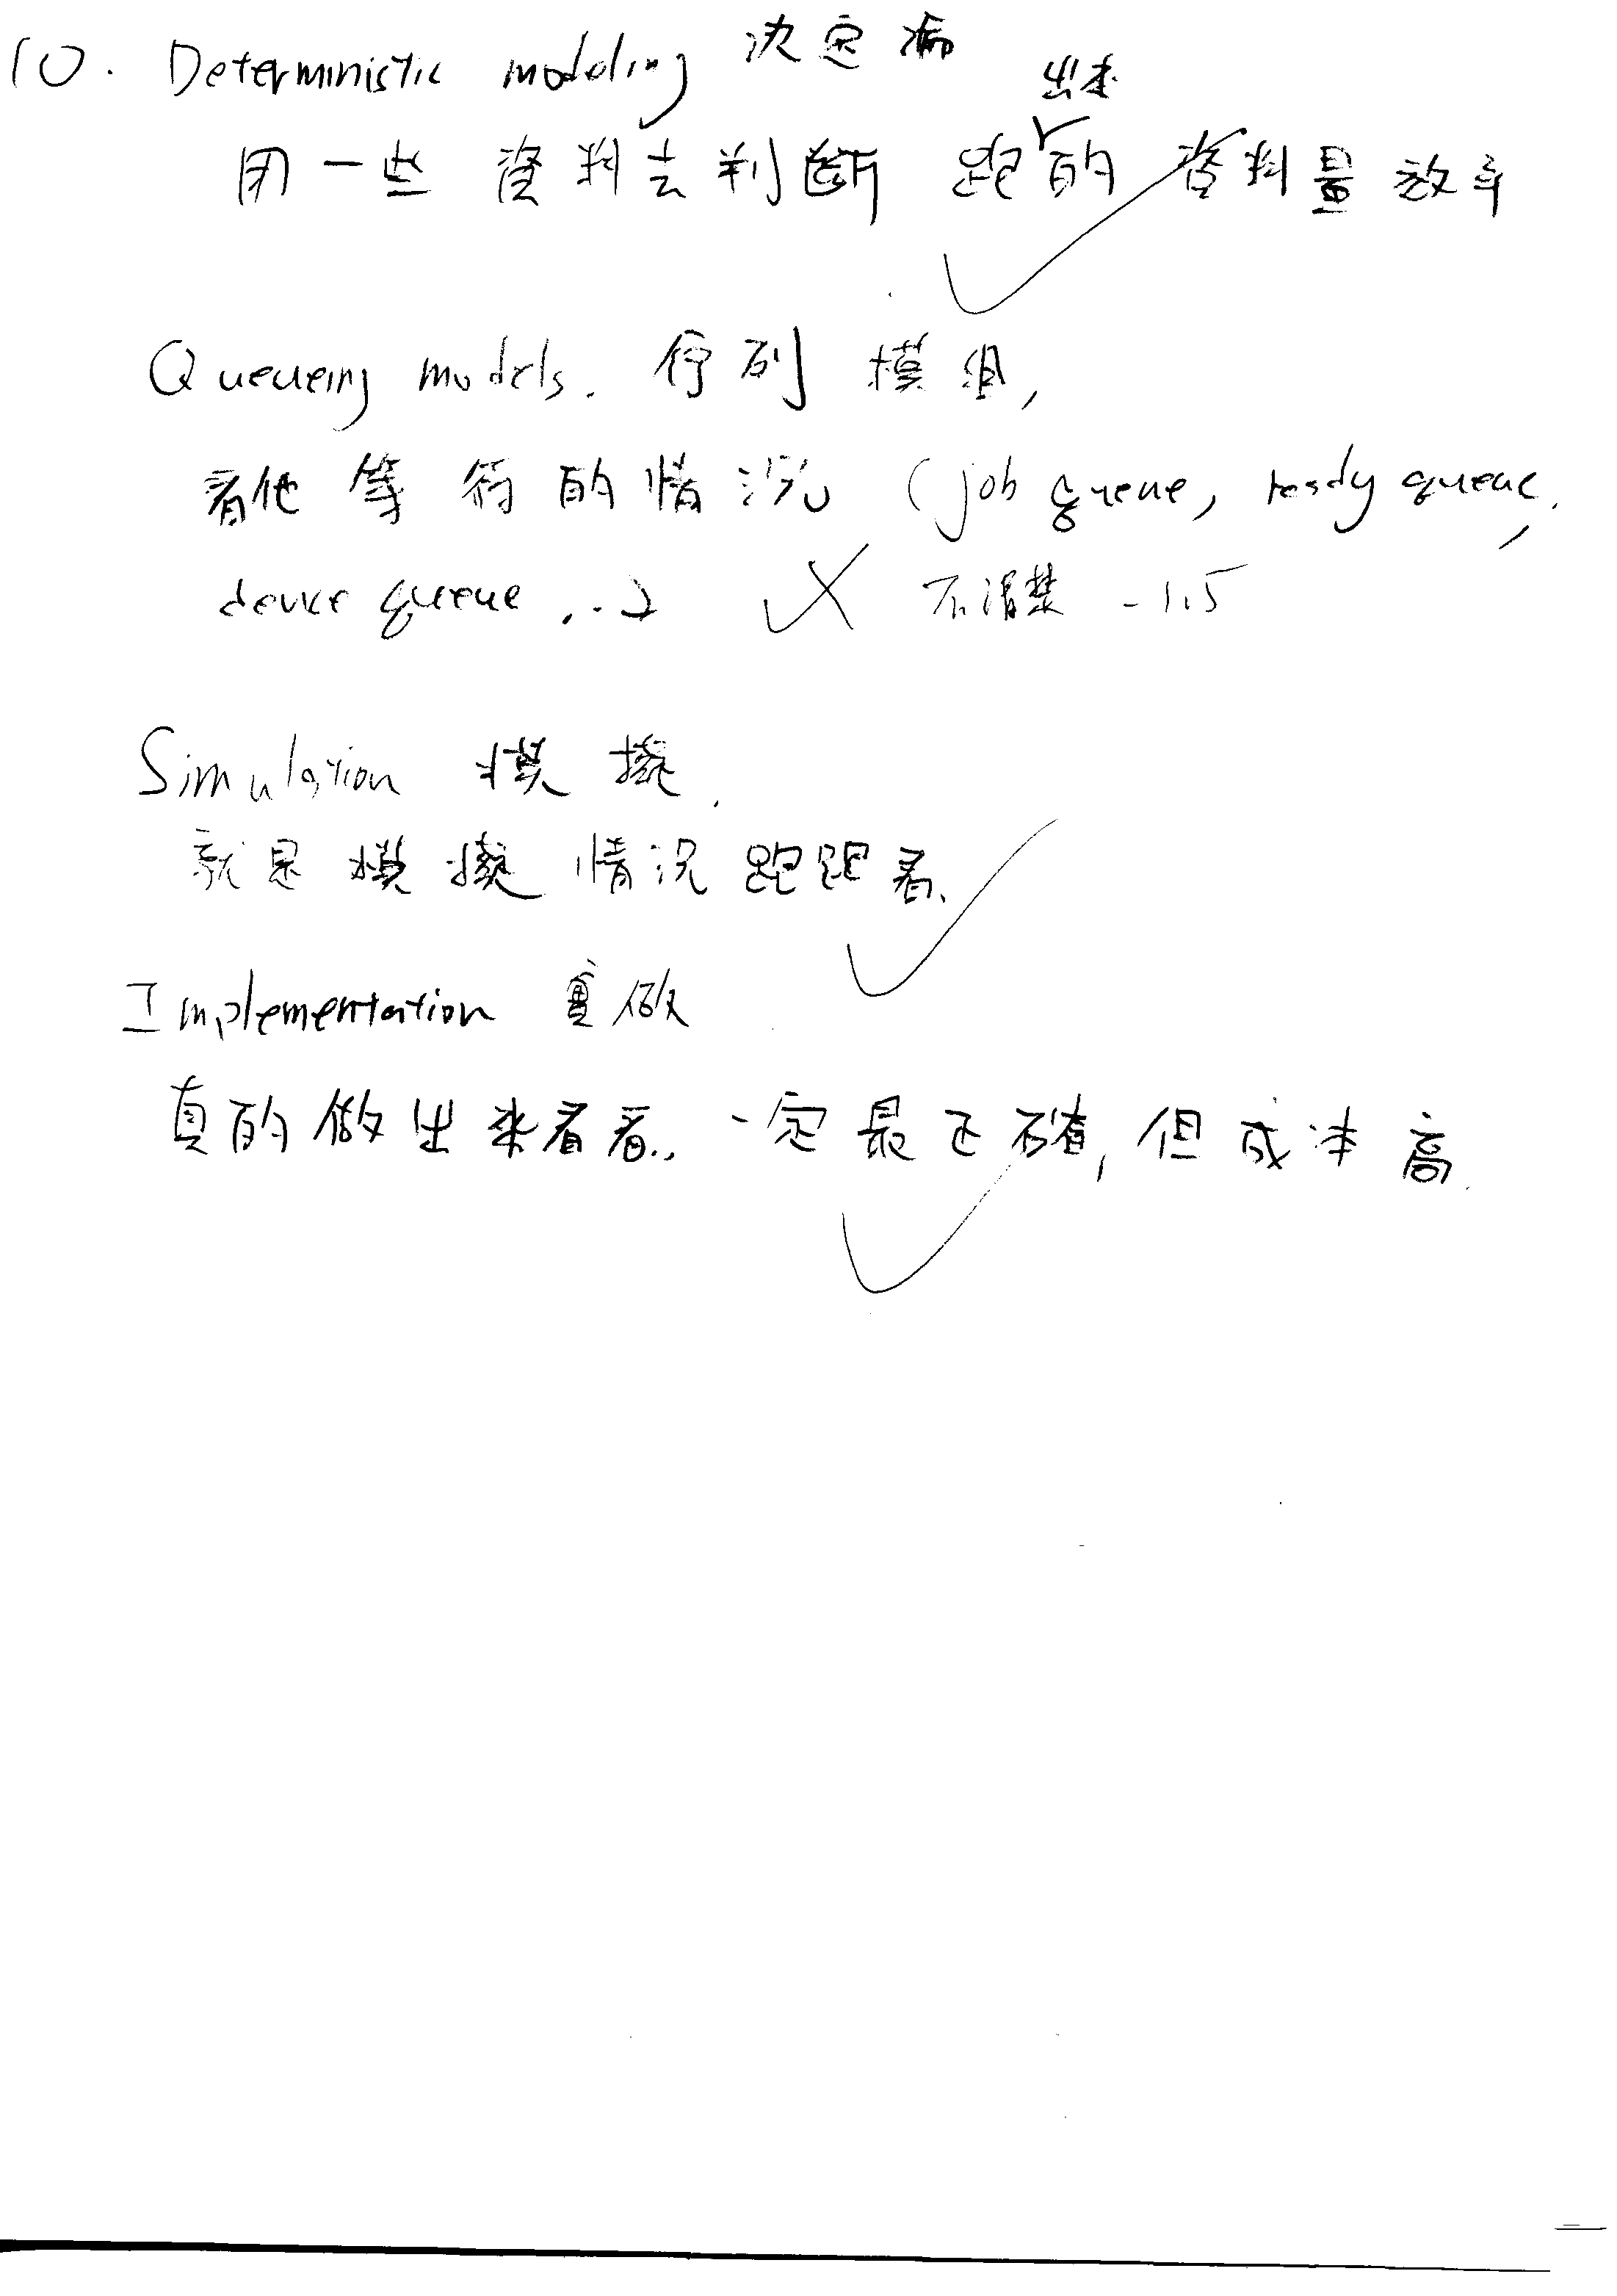 10. Deterministic modeling 決定論
出來
用一些資料去判斷 跑的 資料量效率
Queueing models. 佇列 模組,
看他 等待的情況 (job queue, ready queue,
device queue ...)
不清楚 -1.5
Simulation 模擬.
就是 模擬 情況跑跑看.
Implementation 實做
真的做出來看看., 一定最正確, 但成本高.